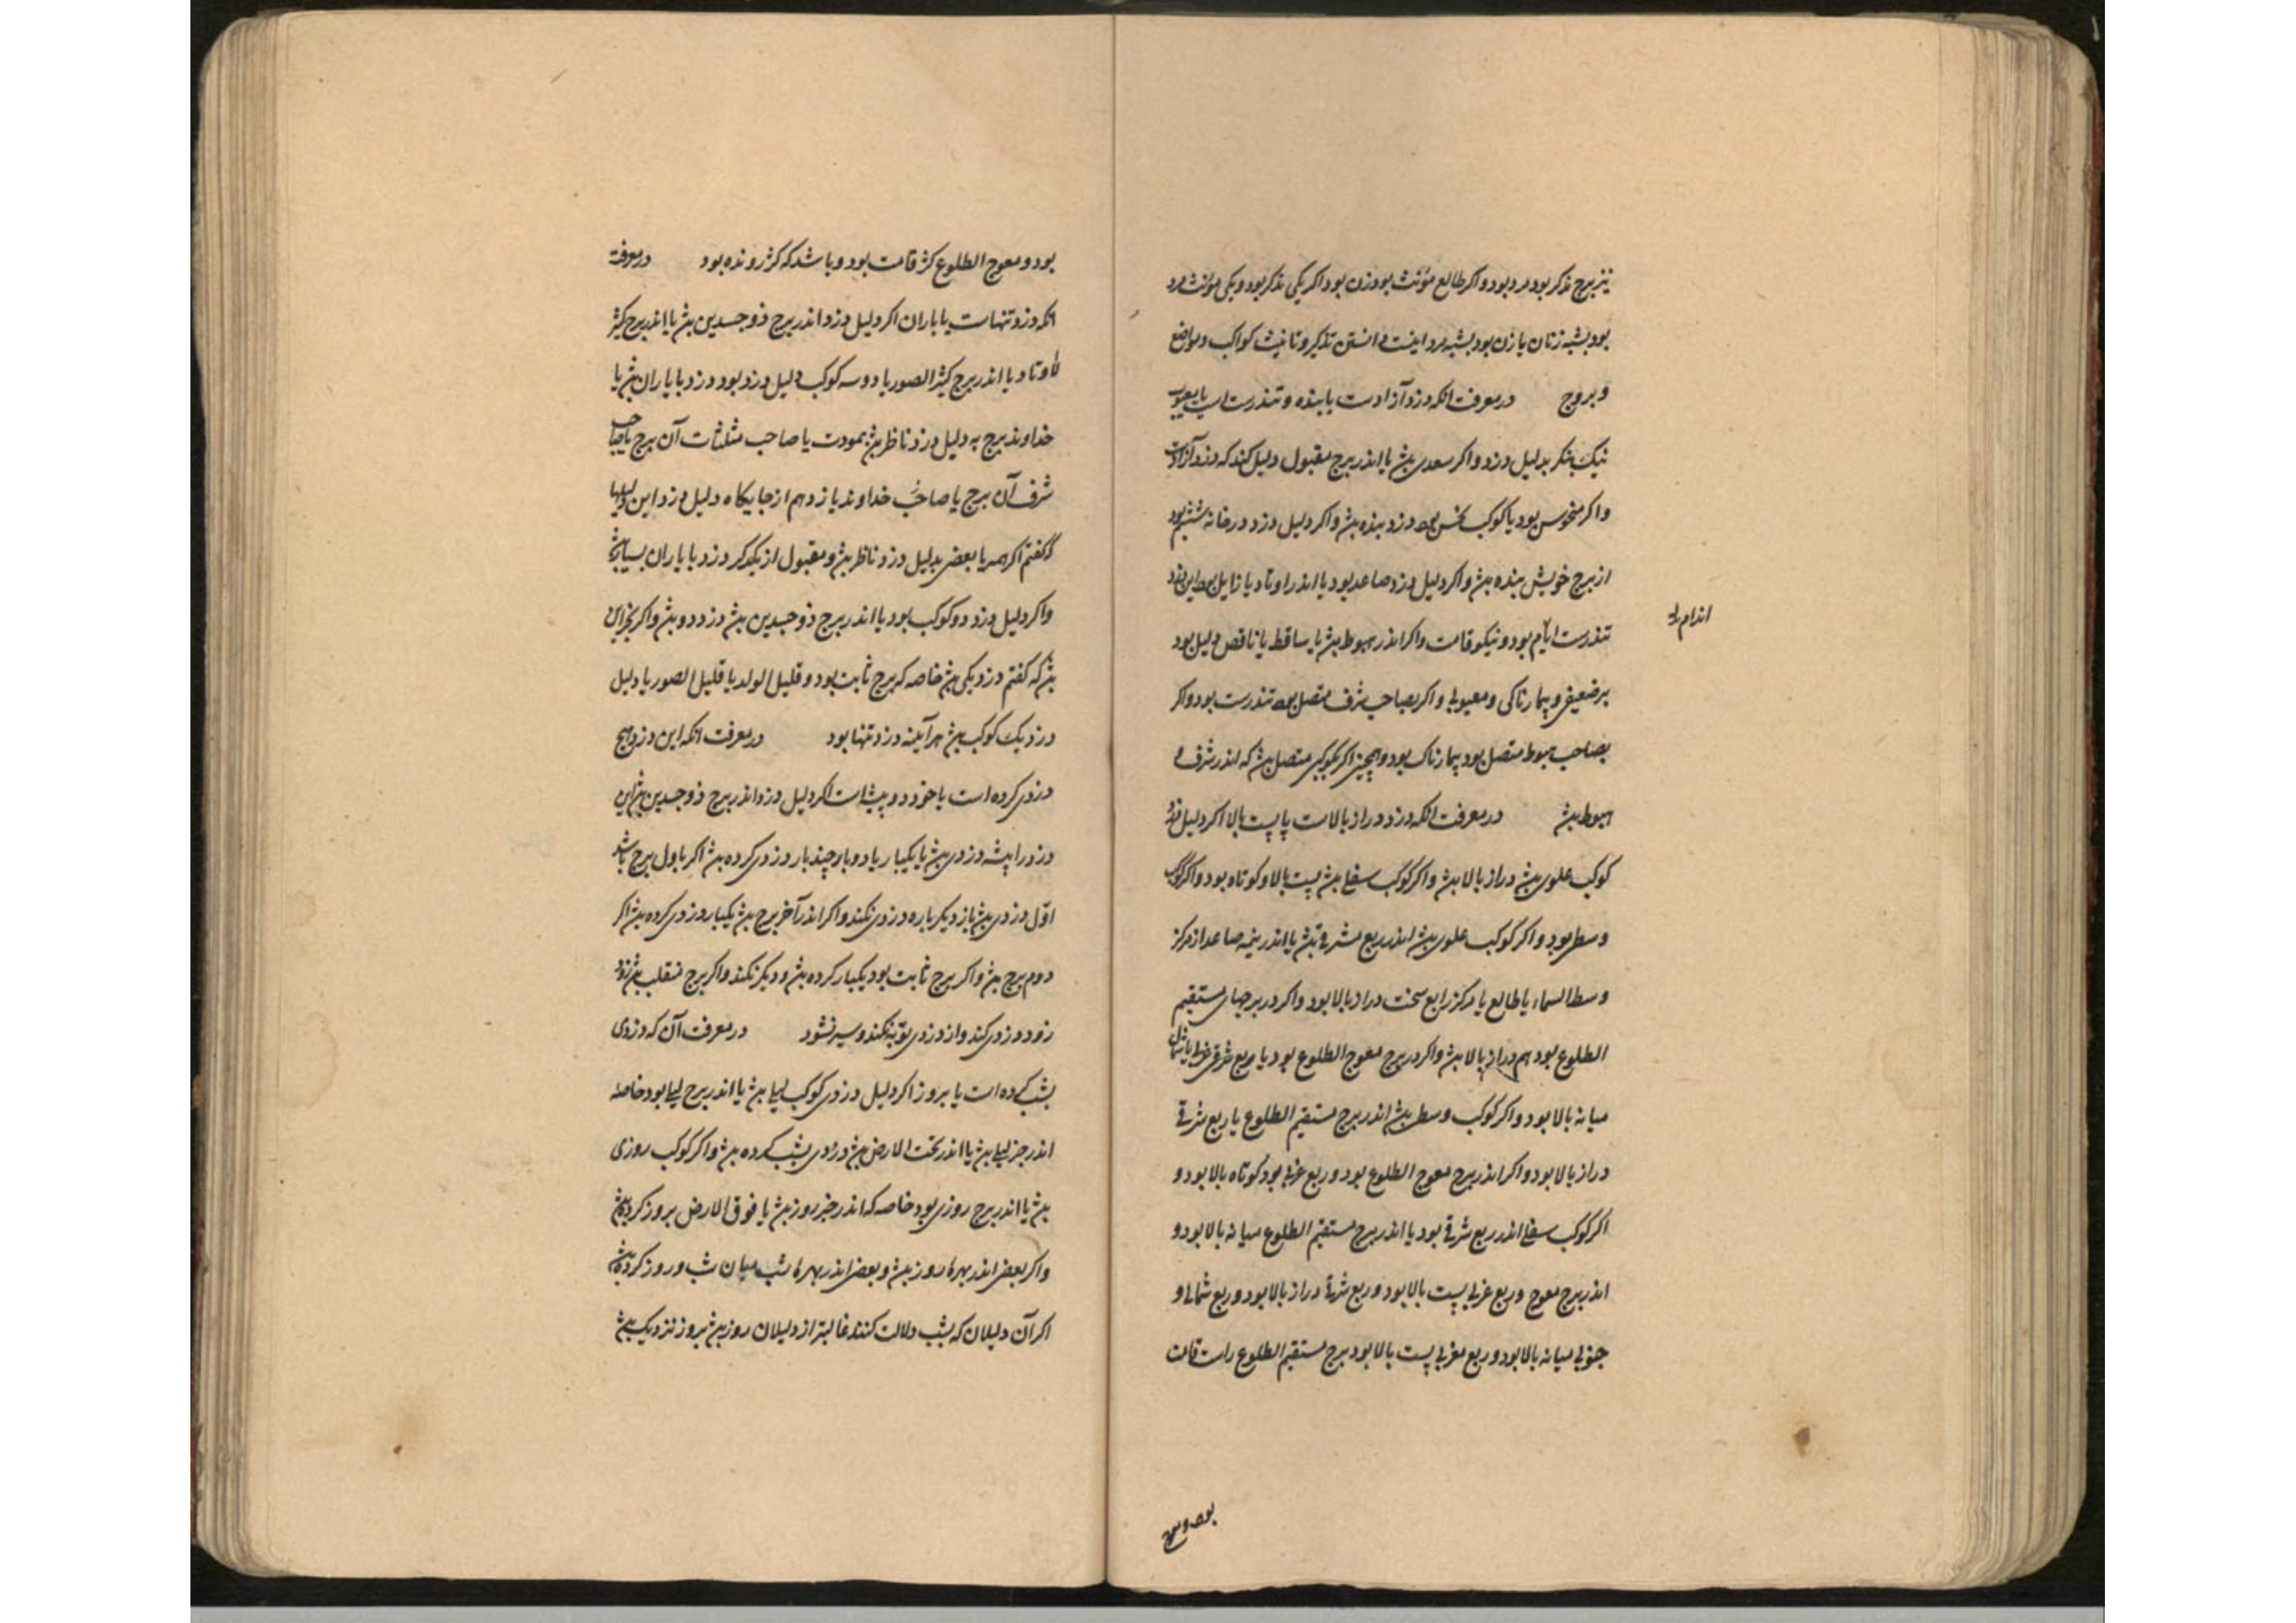 نیز برج مذکر بود مرد بود و اکر طالع مؤنث بود زن بود اکر یکی مذکر بود و یکی مؤنث مرد
بود بشبه زنان یا زن بود بشبه مرد اینست دانستن تذکیر و تانیث کواکب و مواضع
و بروج در معرفت انکه دزد آزادست یا بنده و تندرست است یا معیوب
نیک بنکر بدلیل دزد و اکر سعدی بش یا اندر برج مقبول دلیل کند که دزد آزادست
و اکر منحوس بود یا کوکب نحس بود دزد بنده بش و اکر دلیل دزد در خانه ششم بود
از برج خویش بنده بش و اکر دلیل دزد صاعد بود یا اندر اوتاد یا زایل بود این دزد
تندرست اندام بود و نیکو قامت و اکر اندر هبوط بش یا ساقط یا ناقص دلیل بود
بر ضعیفی و بیمارناکی و معیوبی و اکر بصاحب شرف متصل بود تندرست بود و اکر
بصاحب هبوط متصل بود بیمارناک بود و همچنین اکر بکوکبی متصل بش که اندر شرف
هبوط بش در معرفت انکه دزد دراز بالاست یا پست بالا اکر دلیل دزد
کوکب علوی بش دراز بالا بش و اکر کوکب سفلی بش پست بالا و کوتاه بود و اکر کوکب
وسطی بود و اکر کوکب علوی بش اندر ربع مشرقی بش یا اندر نیمه صاعد از مرکز
وسط السماء یا طالع یا مرکز رابع سخت دراز بالا بود و اکر در برجهای مستقیم
الطلوع بود هم دراز بالا بش و اکر در برج معوج الطلوع بود یا ربع شرقی
میانه بالا بود و اکر کوکب وسطی بش اندر برج مستقیم الطلوع یا ربع شرقی
دراز بالا بود و اکر اندر برج معوج الطلوع بود و ربع غربی بود کوتاه بالا بود و
اکر کوکب سفلی اندر ربع شرقی بود یا اندر برج مستقیم الطلوع میانه بالا بود و
اندر برج معوج و ربع غربی پست بالا بود و ربع شرقی دراز بالا بود و ربع شمالی و
جنوبی میانه بالا بود و ربع مغربی پست بالا بود برج مستقیم الطلوع راست قامت
اندام
بود و معوج
بود و معوج الطلوع کژ قامت بود و باشد که کژ رونده بود در معرفت
انکه دزد تنهاست یا یاران اکر دلیل دزد اندر برج ذو جسدین بش یا اندر برج کثیر
الاوتاد یا اندر برج کثیر الصور یا دو سه کوکب دلیل دزد بود دزد با یاران بش یا
خداوند برج به دلیل دزد ناظر بش بمودت یا صاحب مثلثات آن برج یا صاحب
شرف آن برج یا صاحب خداوند یازدهم از جایکاه دلیل دزد این دلیلها
که گفتم اکر همه یا بعضی بدلیل دزد ناظر بش و مقبول از یکدکر دزد با یاران بسیار بش
و اکر دلیل دزد دو کوکب بود یا اندر برج ذو جسدین بش دزد دو بش و اکر بجز این
بش که گفتم دزد یکی بش خاصه که برج ثابت بود و قلیل الولد یا قلیل الصور یا دلیل
دزد یک کوکب بش هر آینه دزد تنها بود در معرفت انکه این دزد هیچ
دزدی کرده است یا خود دو پیشه است اکر دلیل دزد اندر برج ذو جسدین بش این
دزد را پیشه دزدی بش یا یکبار یا دو بار چند بار دزدی کرده بش اکر باول برج باشد
اول دزدی بش باز دیکر باره دزدی نکند و اکر اندر آخر برج بش یکبار دزدی کرده بش اکر
دوم برج بش و اکر برج ثابت بود یکبار کرده بش و دیکر نکند و اکر برج منقلب بش دزد
زود دزدی کند و از دزدی توبه نکند و سیر نشود در معرفت آن که دزدی
بشب کرده است یا بروز اکر دلیل دزدی کوکب لیلی بش یا اندر برج لیلی بود خاصه
اندر حیز لیلی بش یا اندر تحت الارض بش دزدی بشب کرده بش و اکر کوکب روزی
بش یا اندر برج روزی بود خاصه که اندر حیز روز بش یا فوق الارض بروز کرده بش
و اکر بعضی اندر بهرهاء روز بش و بعضی اندر بهرهاء شب میان شب و روز کرده بش
اکر آن دلیلان که بشب دلالت کنند غالبتر از دلیلان روز بش بروز نزدیک بش